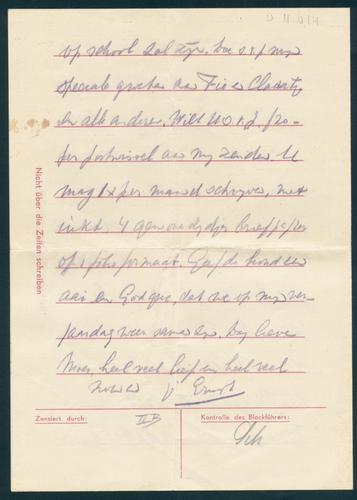 D II b 14
op school zal zijn. Doe s.v.p mijn
speciale groeten aan Fie en
en alle anderen. Wilt U o.v.j. f20-
per postwissel aan mij zenden U
mag 1x per maand schrijven, met
inkt. 4 gewone zijdjes briefpapier
of 1 folio formaat. Geef de hond een
aai en God geve, dat we op mijn ver-
jaardag weer samen zijn. Dag lieve
Moes, heel veel liefs en heel veel
Ernst
Nicht über die Zeilen schreiben
Zensiert durch:
IIB
Kontrolle des Blockführers:
Sch